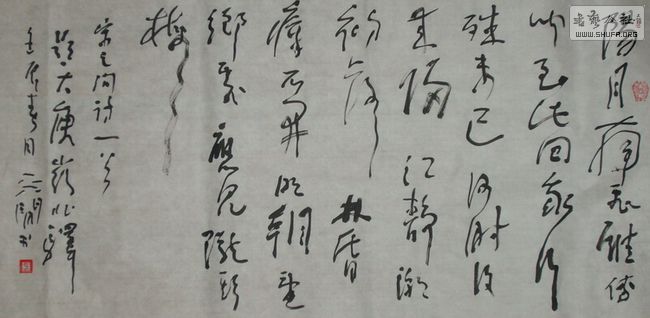 陽月南飛雁傳
聞至此回我行
殊未已何時復
来歸江靜潮
初落林昏
瘴不開明朝望
鄉處應見隴頭
梅
宋之問詩一首
題大庾嶺北驛
壬辰春月
WWW.SHUFA.ORG